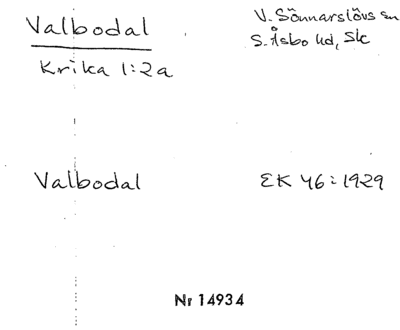 Valbodal
V. Sönnarslövs sn
S. Åsbo hd, Sk
Krika 1:2a
Valbodal
EK 46:1929
Nr 14934